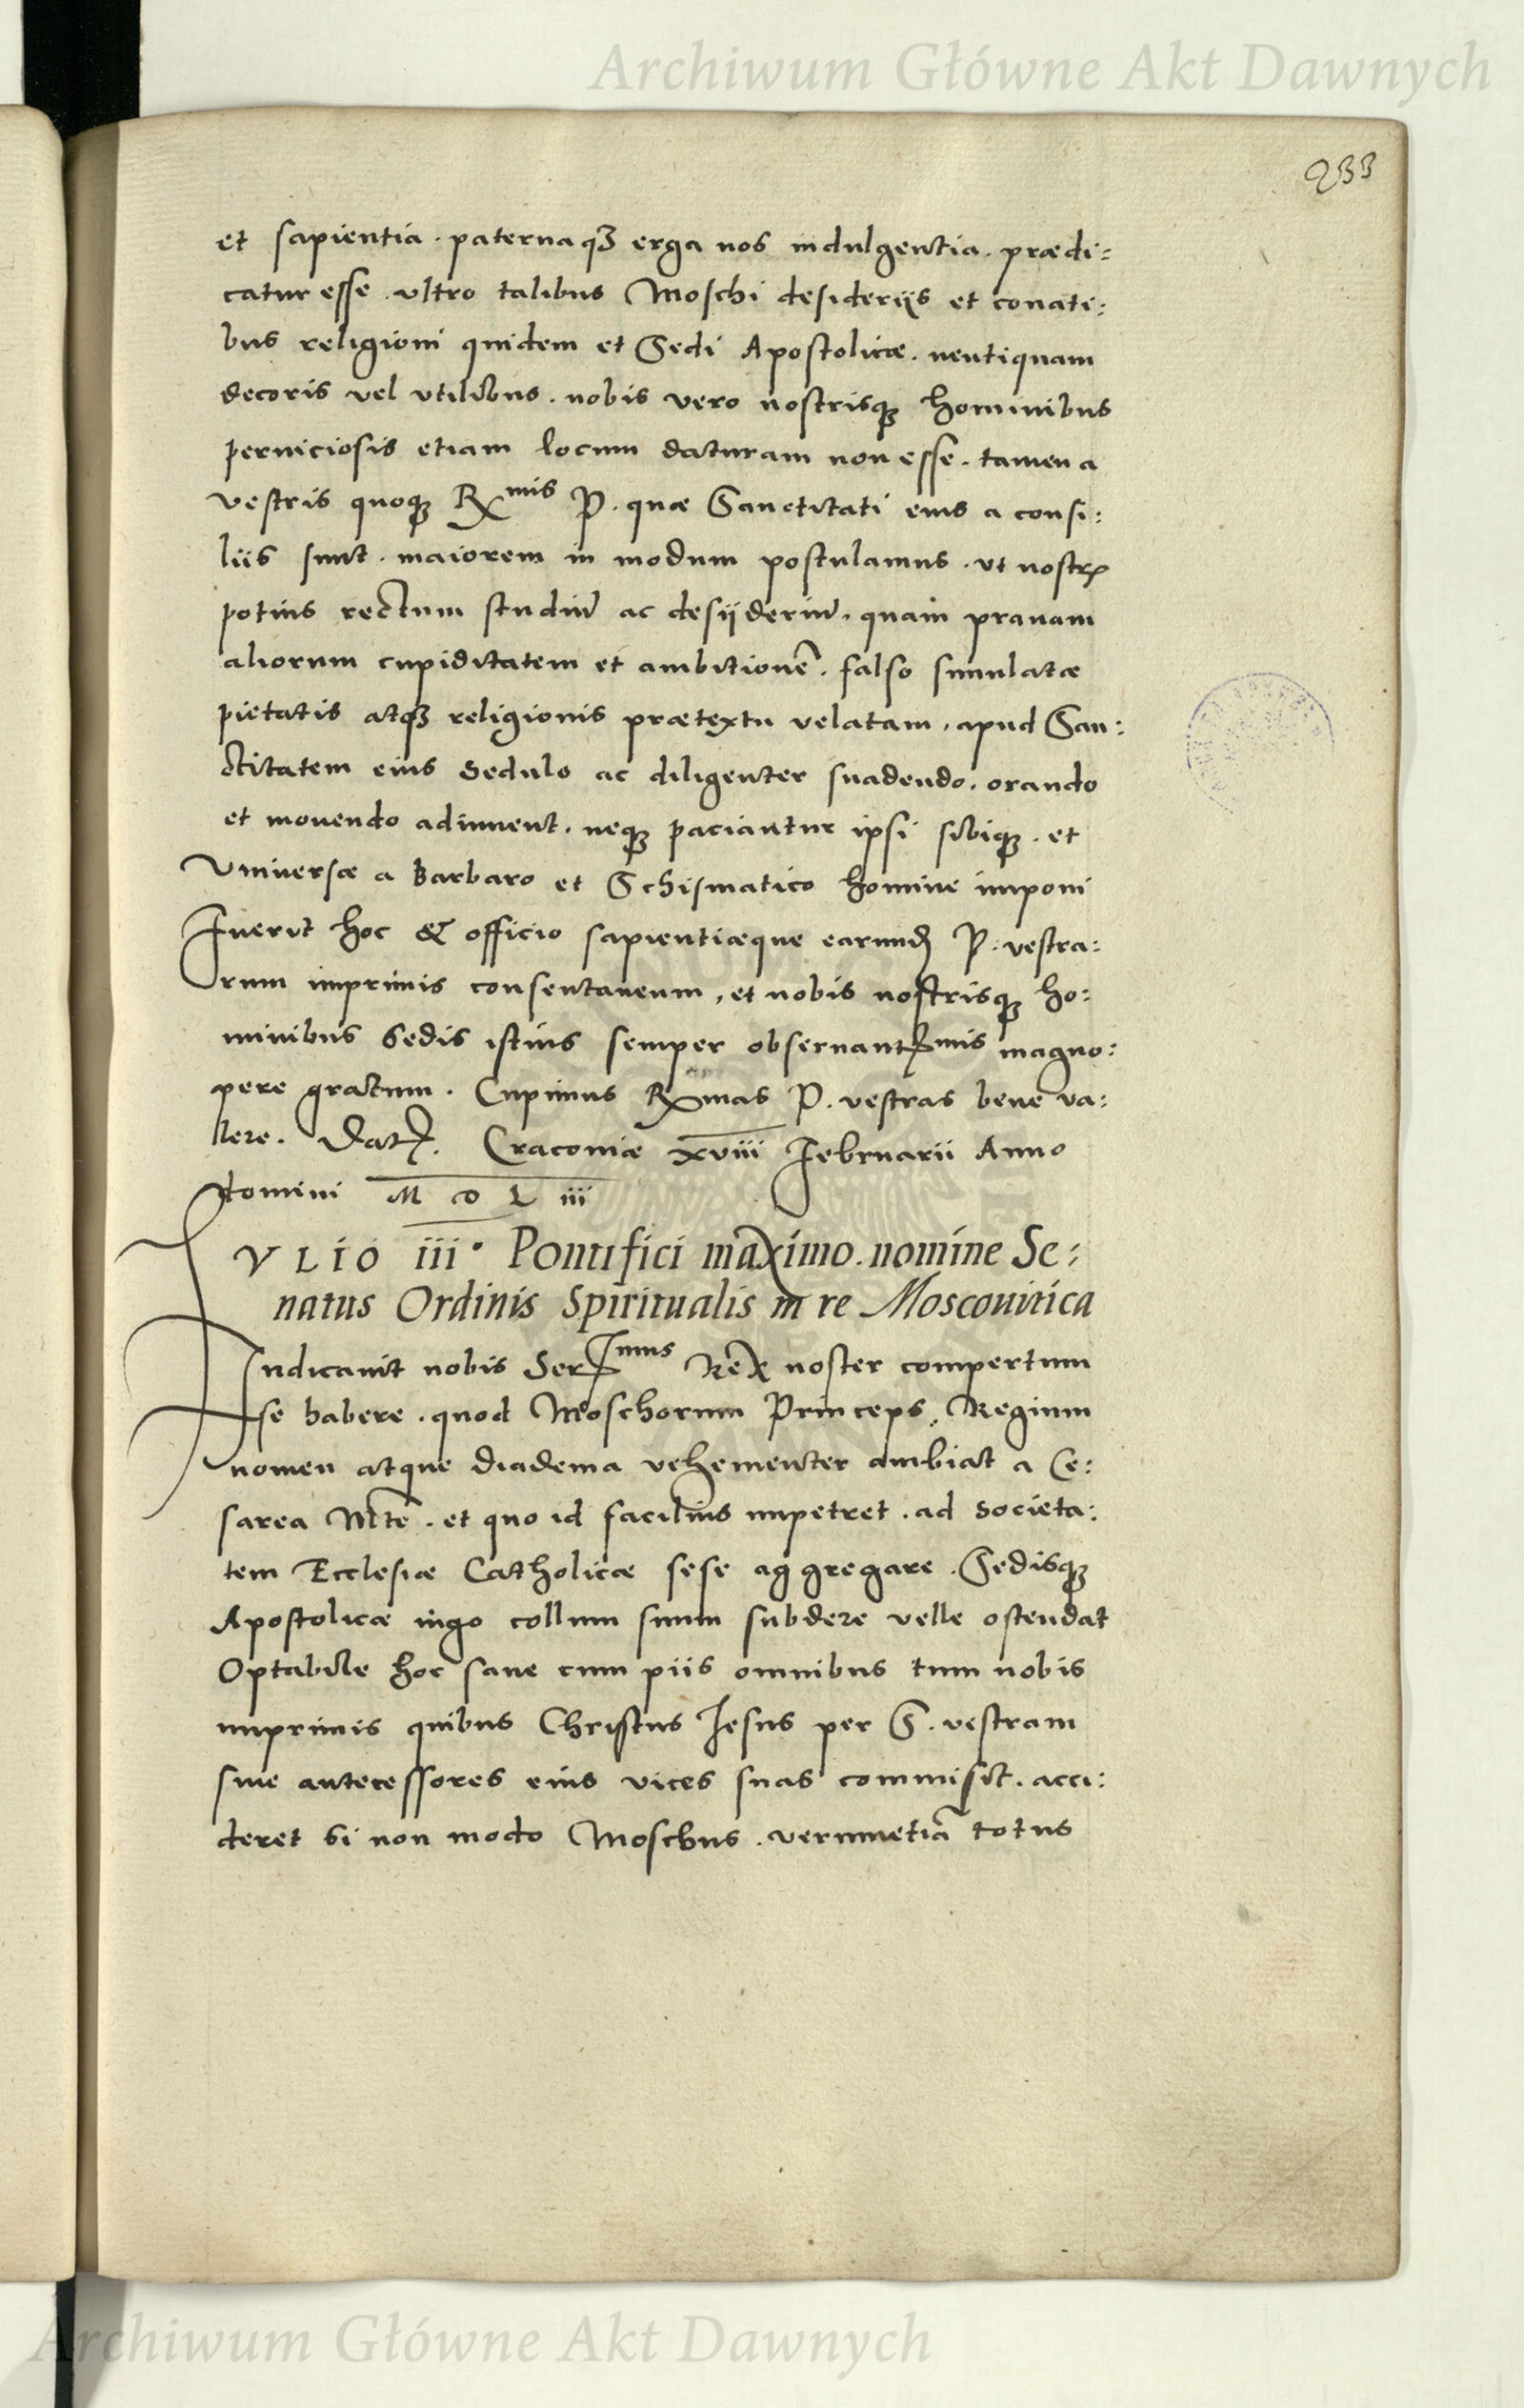 Archiwum Główne Akt Dawnych
233
et sapientia. paternaqȝ erga nos indulgentia. prædi:
catur esse. vltro talibus Moschi desiderijs et conati:
bus religioni quidem et Sedi Apostolicæ. neutiquam
decoris vel vtilibus. nobis vero nostrisqȝ hominibus
perniciosis etiam locum daturam non esse. tamen a
vestris quoqȝ Rmis P. quæ Sanctitati eius a consi:
liis sunt. maiorem in modum postulamus. vt nostrȩ
potius rectum studiũ ac desijderiũ. quam prauam
aliorum cupiditatem et ambitionẽ. falso simulatæ
pietatis atqȝ religionis prætextu velatam. apud San:
ctitatem eius sedulo ac diligenter suadendo. orando
et mouendo adiuuent. neqȝ paciantur ipsi sibiqȝ. et
Vniuersæ a barbaro et Schismatico homine imponi
Fuerit hoc & officio sapientiæque earund P. vestra:
rum imprimis consentaneum, et nobis nostrisqȝ ho:
minibus Sedis istius semper obseruantmis magno:
pere gratum. Cupimus Rmas P. vestras bene va:
lere. Dat. Cracouiæ xviii Februarii Anno
Domini M D L iii
IVLIO iii. Pontifici maximo. nomine Se:
natus Ordinis Spiritualis in re Moscouitica
Indicauit nobis Sermus Rex noster compertum
se habere. quod Moschorum Princeps, Regium
nomen atque diadema vehementer ambiat a Ce:
sarea Mte. et quo id facilius impetret. ad societa:
tem Ecclesiæ Catholicæ sese aggregare. Sedisqȝ
Apostolicæ iugo collum suum subdere velle ostendat
Optabile hoc sane cum piis omnibus tum nobis
imprimis quibus Christus Jesus per S. vestram
siue antecessores eius vices suas commisit. acci:
deret si non modo Moschus. verumetiã totus
Archiwum Główne Akt Dawnych